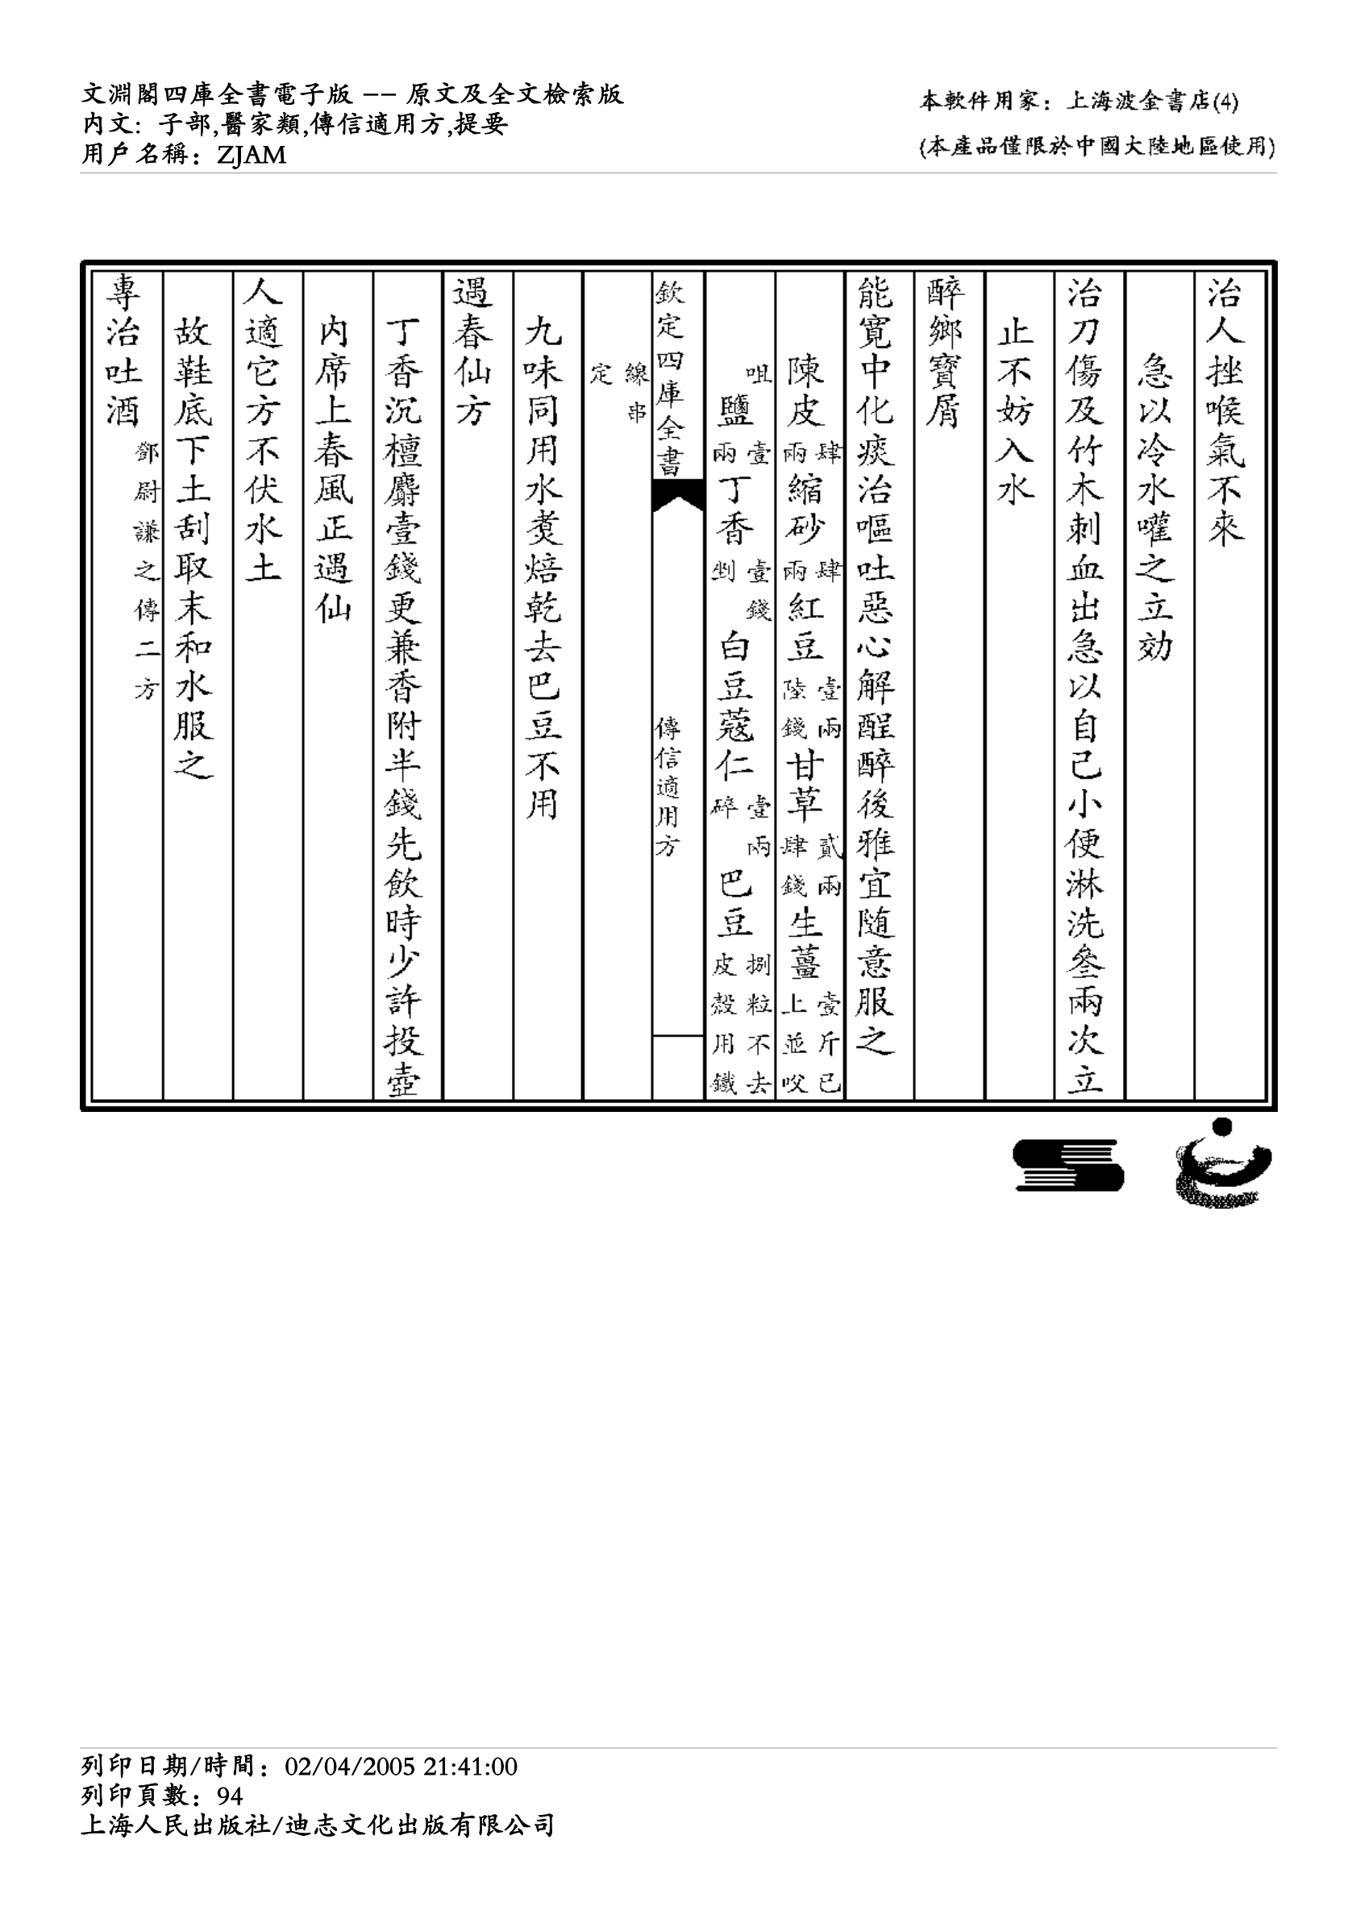 文淵閣四庫全書電子版 -- 原文及全文檢索版
內文: 子部,醫家類,傳信適用方,提要
用戶名稱: ZJAM
本軟件用家: 上海波金書店(4)
(本產品僅限於中國大陸地區使用)
治人挫喉氣不來
急以冷水嚾之立効
治刀傷及竹木刺血出急以自己小便淋洗叄兩次立
止不妨入水
醉鄉寶屑
能寛中化痰治嘔吐惡心解酲醉後雅宜隨意服之
陳皮肆兩縮砂肆兩紅豆壹兩陸錢甘草貳兩肆錢生薑壹斤已上並㕮
咀鹽壹兩丁香壹錢剉白豆蔻仁壹兩碎巴豆捌粒不去皮殻用鐵
欽定四庫全書
傳信適用方
線串定
九味同用水煑焙乾去巴豆不用
遇春仙方
丁香沉檀麝壹錢更兼香附半錢先飲時少許投壺
内席上春風正遇仙
人適它方不伏水土
故鞋底下土刮取末和水服之
專治吐酒鄧尉謙之傳二方
列印日期/時間: 02/04/2005 21:41:00
列印頁數: 94
上海人民出版社/迪志文化出版有限公司